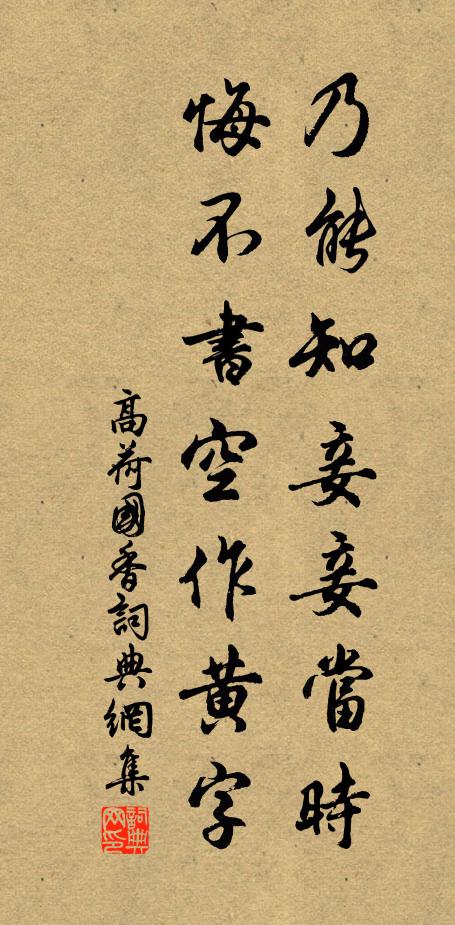 乃能知妾妾當時
悔不書空作黃字
高荷國香詞典網集
詞典网印